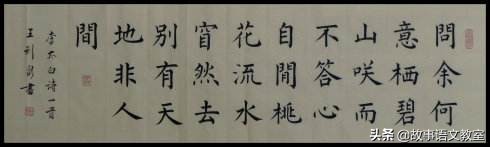 問余何
意栖碧
山咲而
不答心
自閒桃
花流水
窅然去
別有天
地非人
間
李太白詩一首
王 書
头条 @故事语文教室